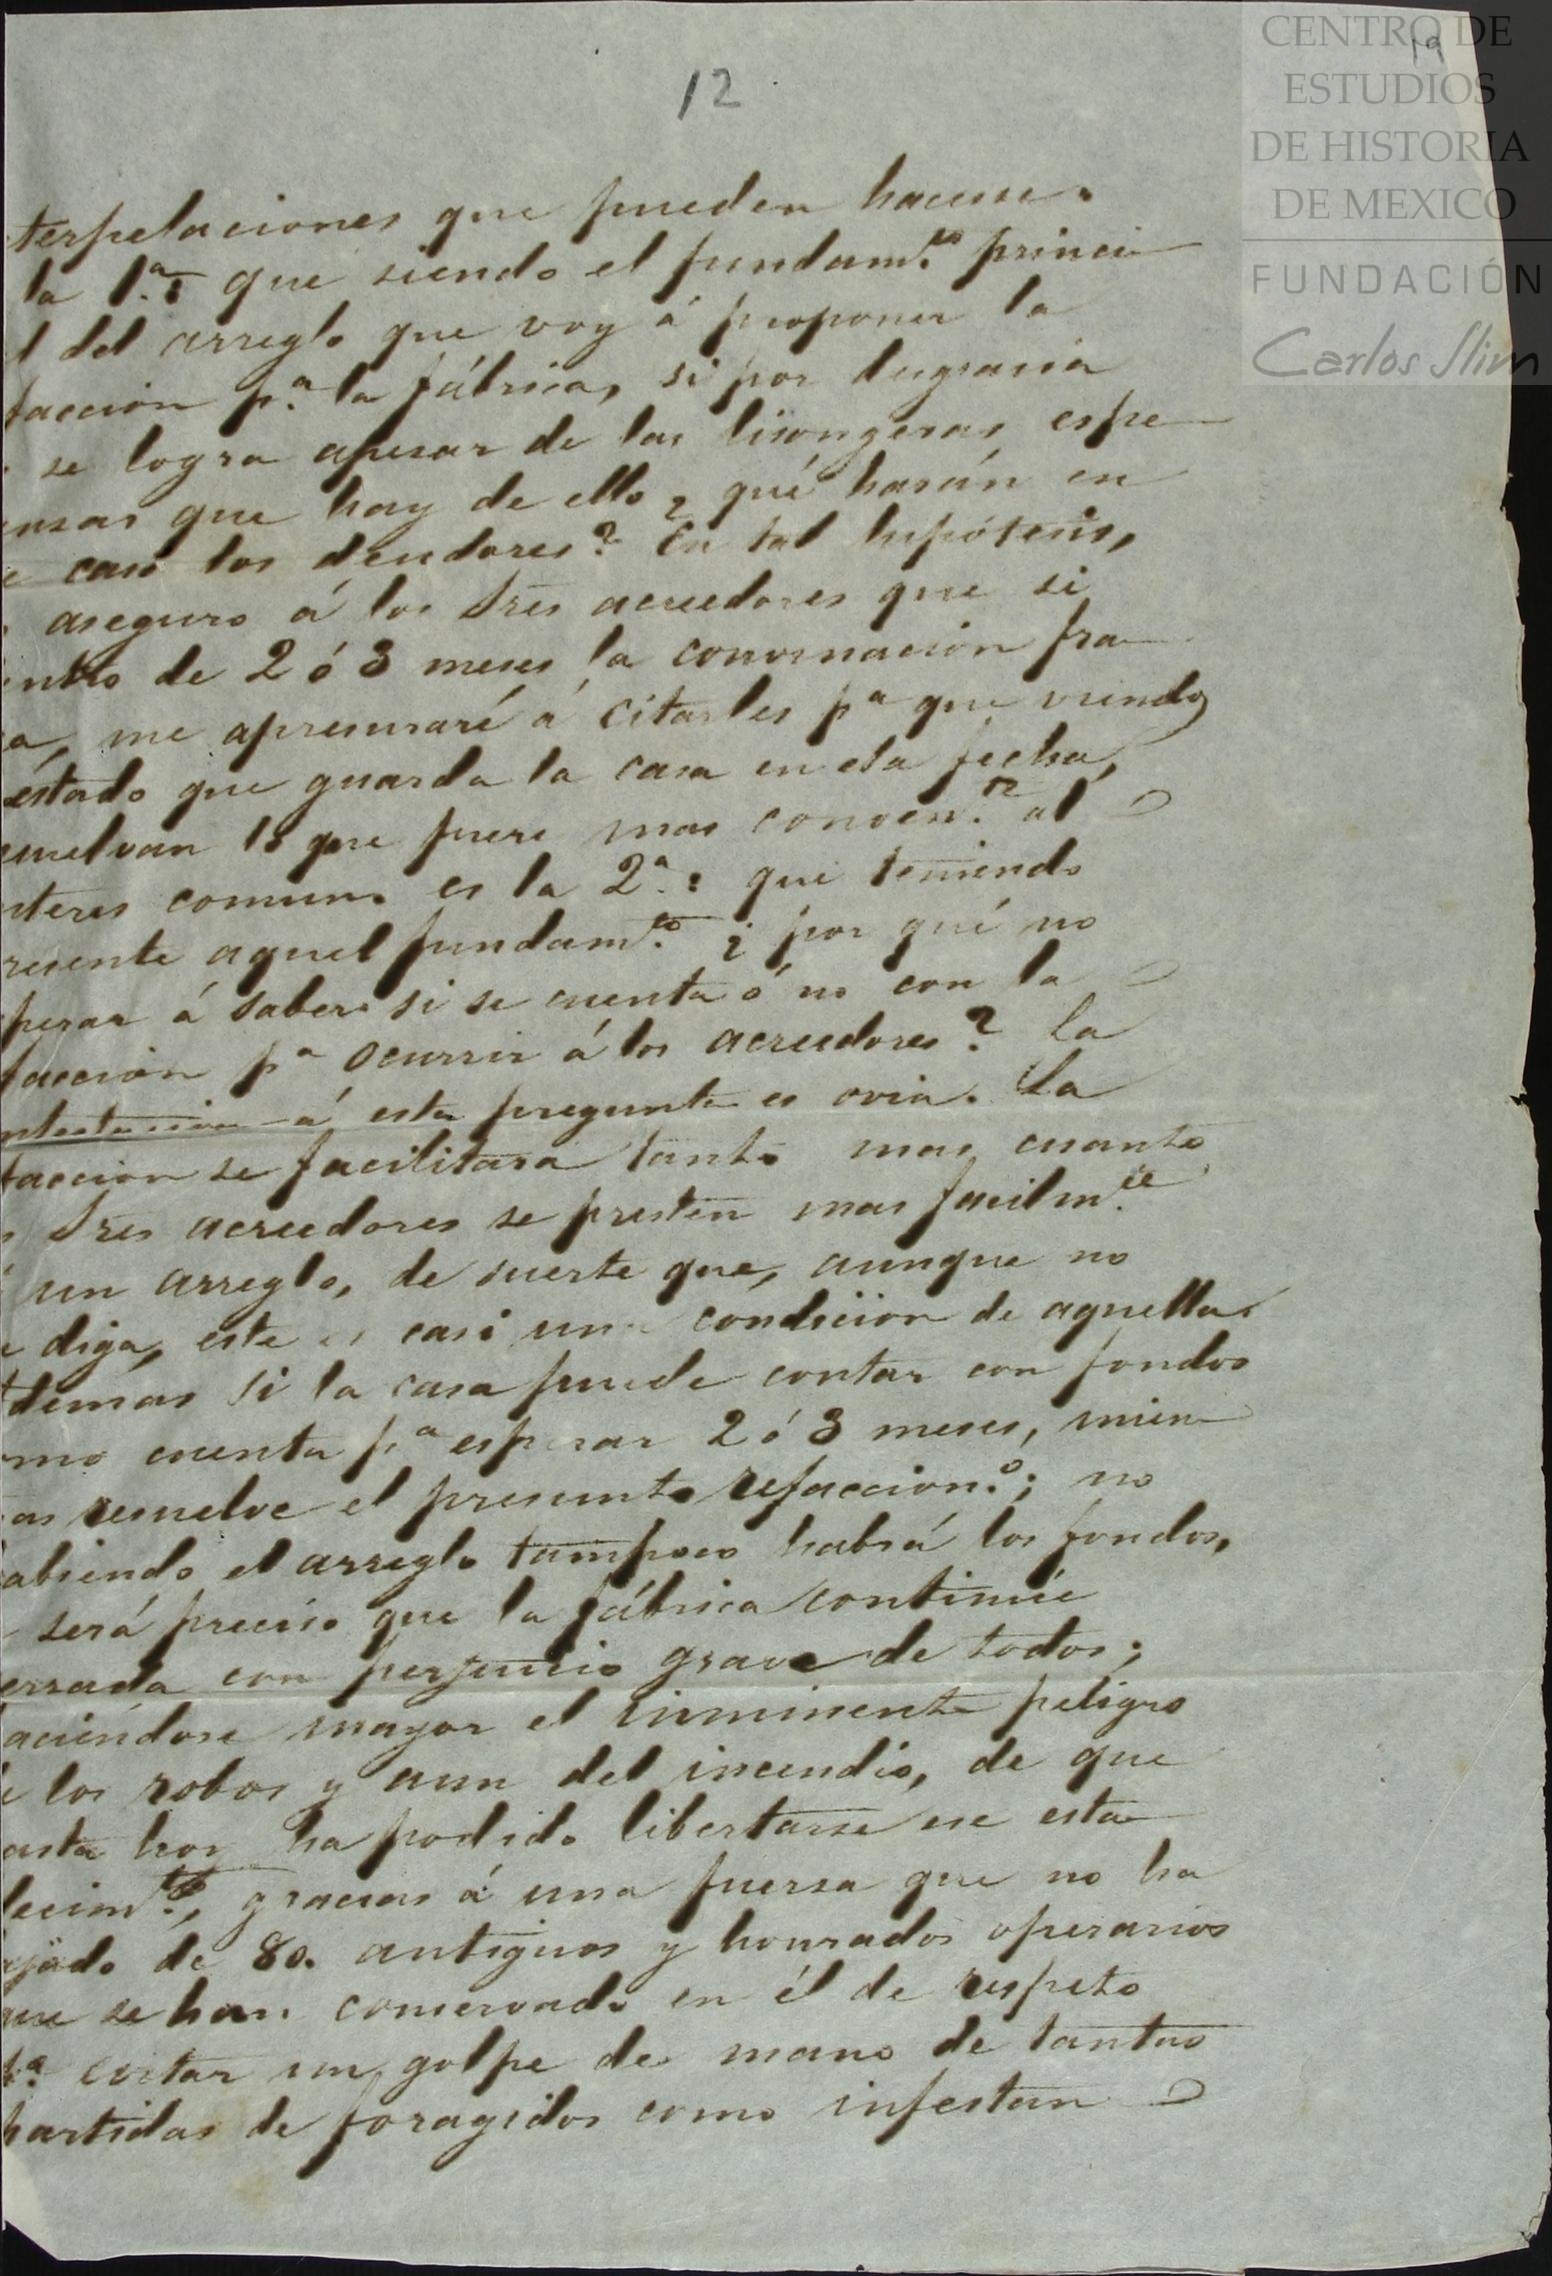 CENTRO DE
ESTUDIOS
DE HISTORIA
DE MEXICO
FUNDACIÓN
Carlos Slim
19
12
terpelaciones que pueden hacerse.
la 1.ª: que siendo el fundam.to princi
l del arreglo que voy á proponer la
facción p.ª la fábrica, si por desgracia
se logra apesar de las lisongeras espe
ansas que hay de ello ¿ qué harán en
e caso los deudores? En tal hipótesis,
aseguro á los Sres acreedores que si
entro de 2 ó 3 meses la convinacion fra
a, me apresuraré á citarles pª que viendo
estado que guarda la casa en esa fecha,
suelvan lo que fuere mas conven.te al
nteres comun. es la 2ª.: que teniendo
resente aquel fundam.to ¿ por qué no
perar á saber si se cuenta ó no con la
facción pª ocurrir á los acreedores? La
ntestacion á esta pregunta es ovia. La
facción se facilitara tanto mas, cuanto
s Sres acreedores se presten mas facilm.te
un arreglo, de suerte que, aunque no
e diga, este es casi una condicion de aquella.
demas si la casa puede contar con fondos
omo cuenta pª esperar 2 ó 3 meses, mien
as resuelve el presunto refaccion.º; no
abiendo el arreglo tampoco habrá los fondos,
será preciso que la fábrica continúe
errada con perjuicio grave de todos;
aciéndose mayor el inminente peligro
e los robos y aun del incendio, de que
asta hoy ha podido libertarse ese esta
lecim.to, gracias á una fuersa que no ha
ajado de 80. antiguos y honrados operarios
que se han conservado en él de respeto
pª. evitar un golpe de mano de tantas
partidas de foragidos como infestan